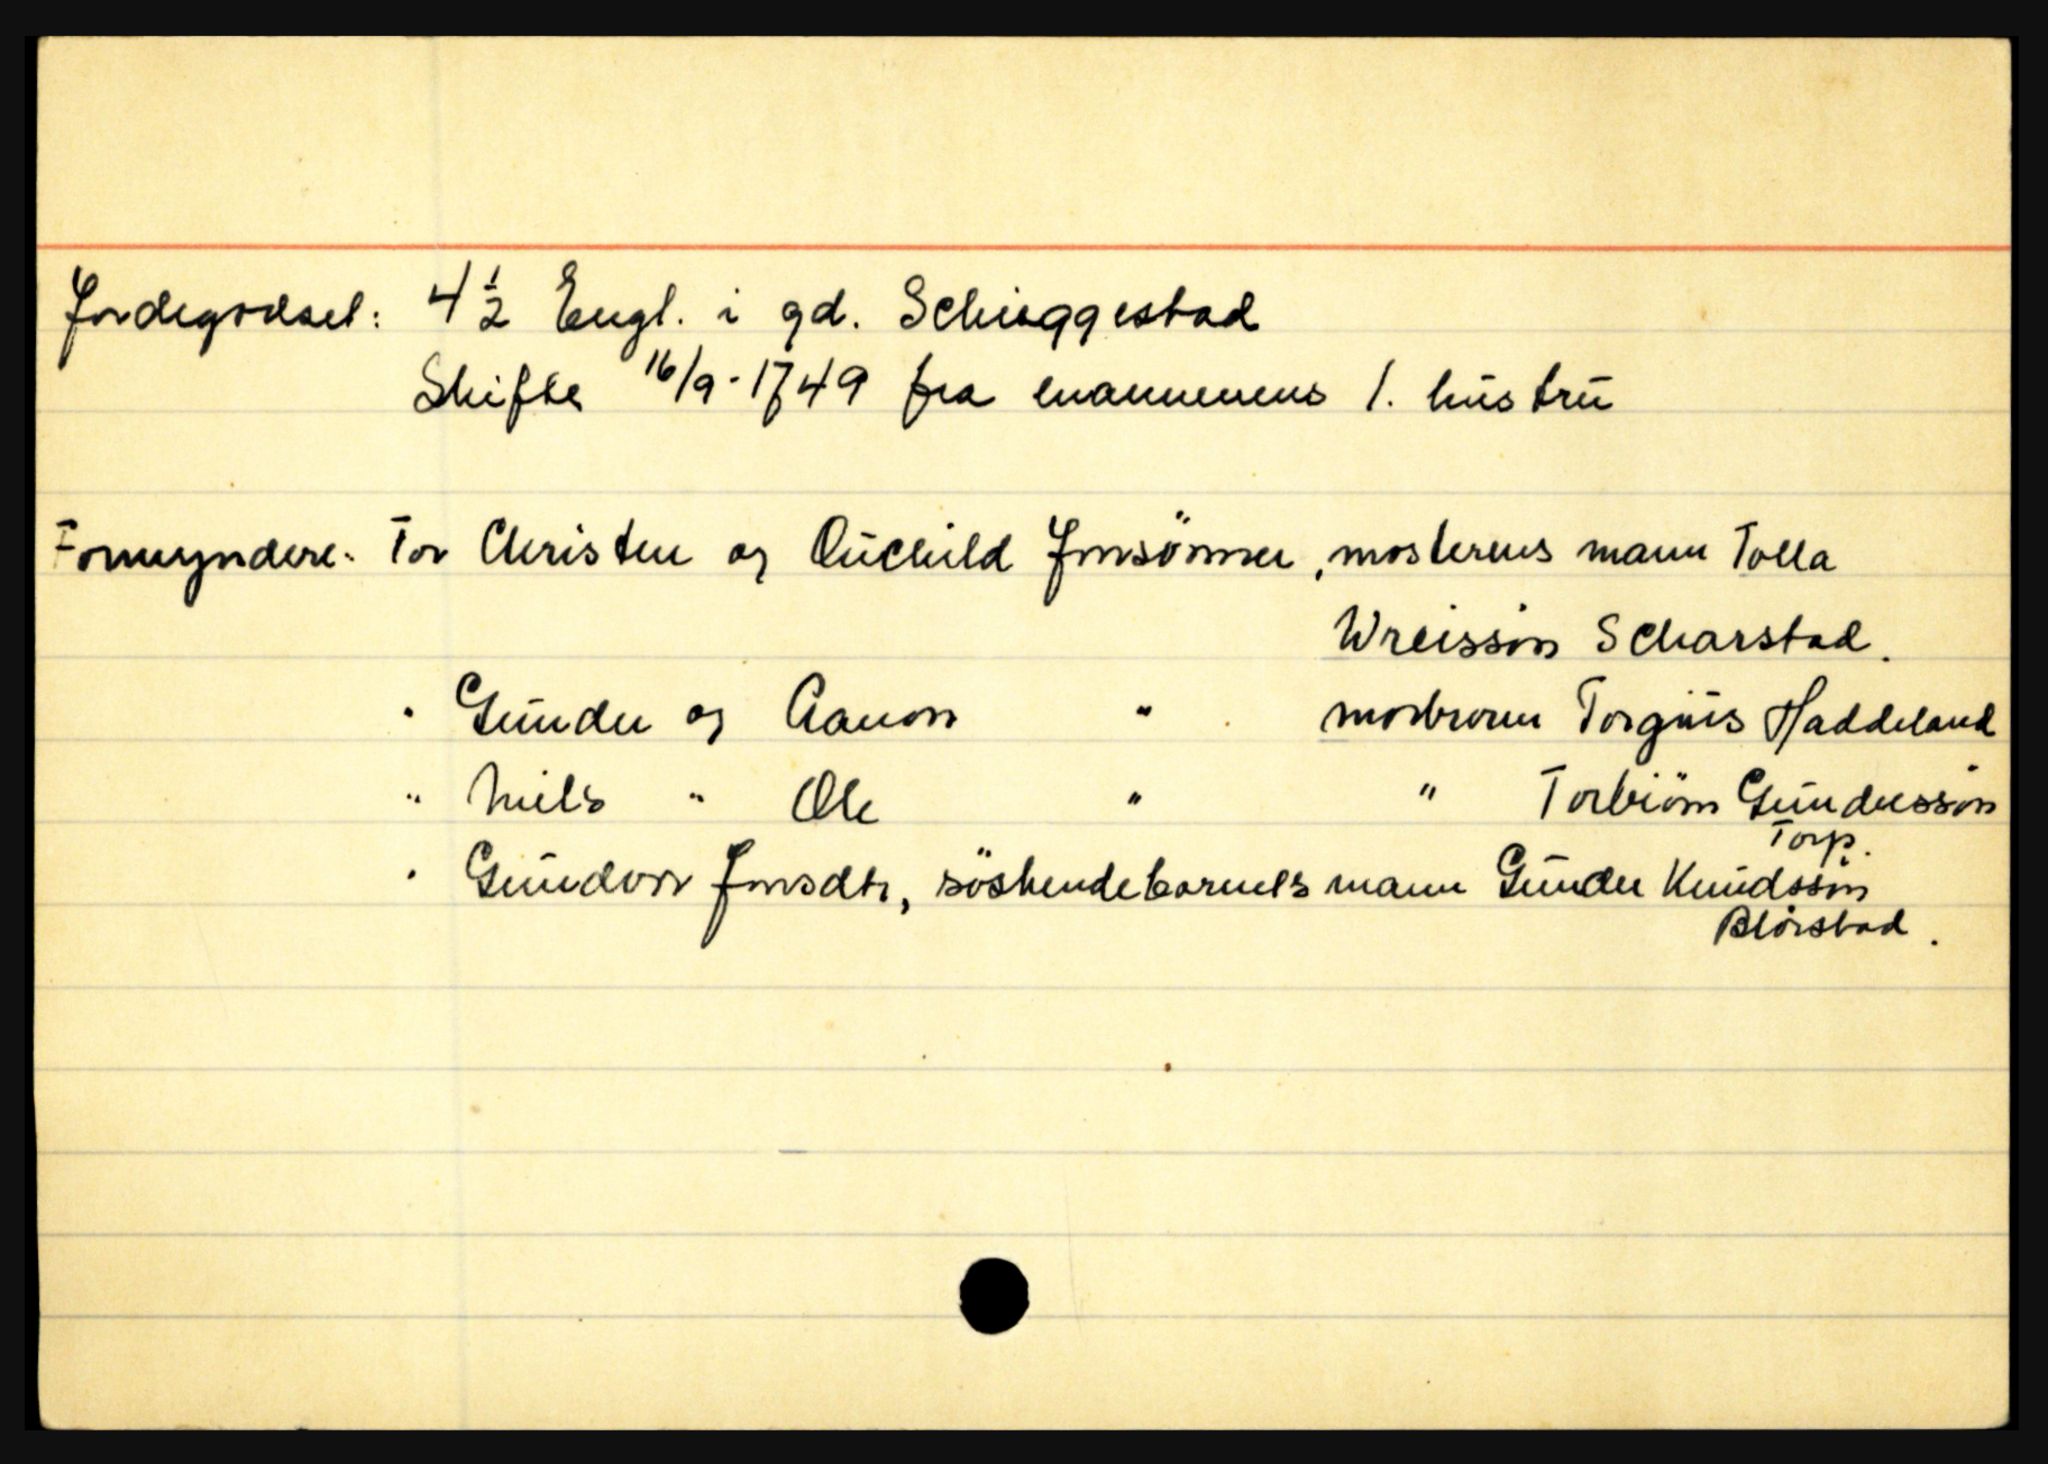 Jordegodset: 4 1/2 Engl. i gd. Scheggestad
Skifte 16/9-1749 fra enamnenens 1. hustru
Formyndere: Tor Christen og Ouchild Jonsönner, mosterens mann Tolla
Wreissön Scharstad.
" Gunder og Aanon " morbroren Torgius Haddeland
" Niels " Ole " " Torbiörn Gundersson
Torp.
" Gundvor Jonsdtr, söskendebarnets mann Gunder Knudssön
Blörstad.